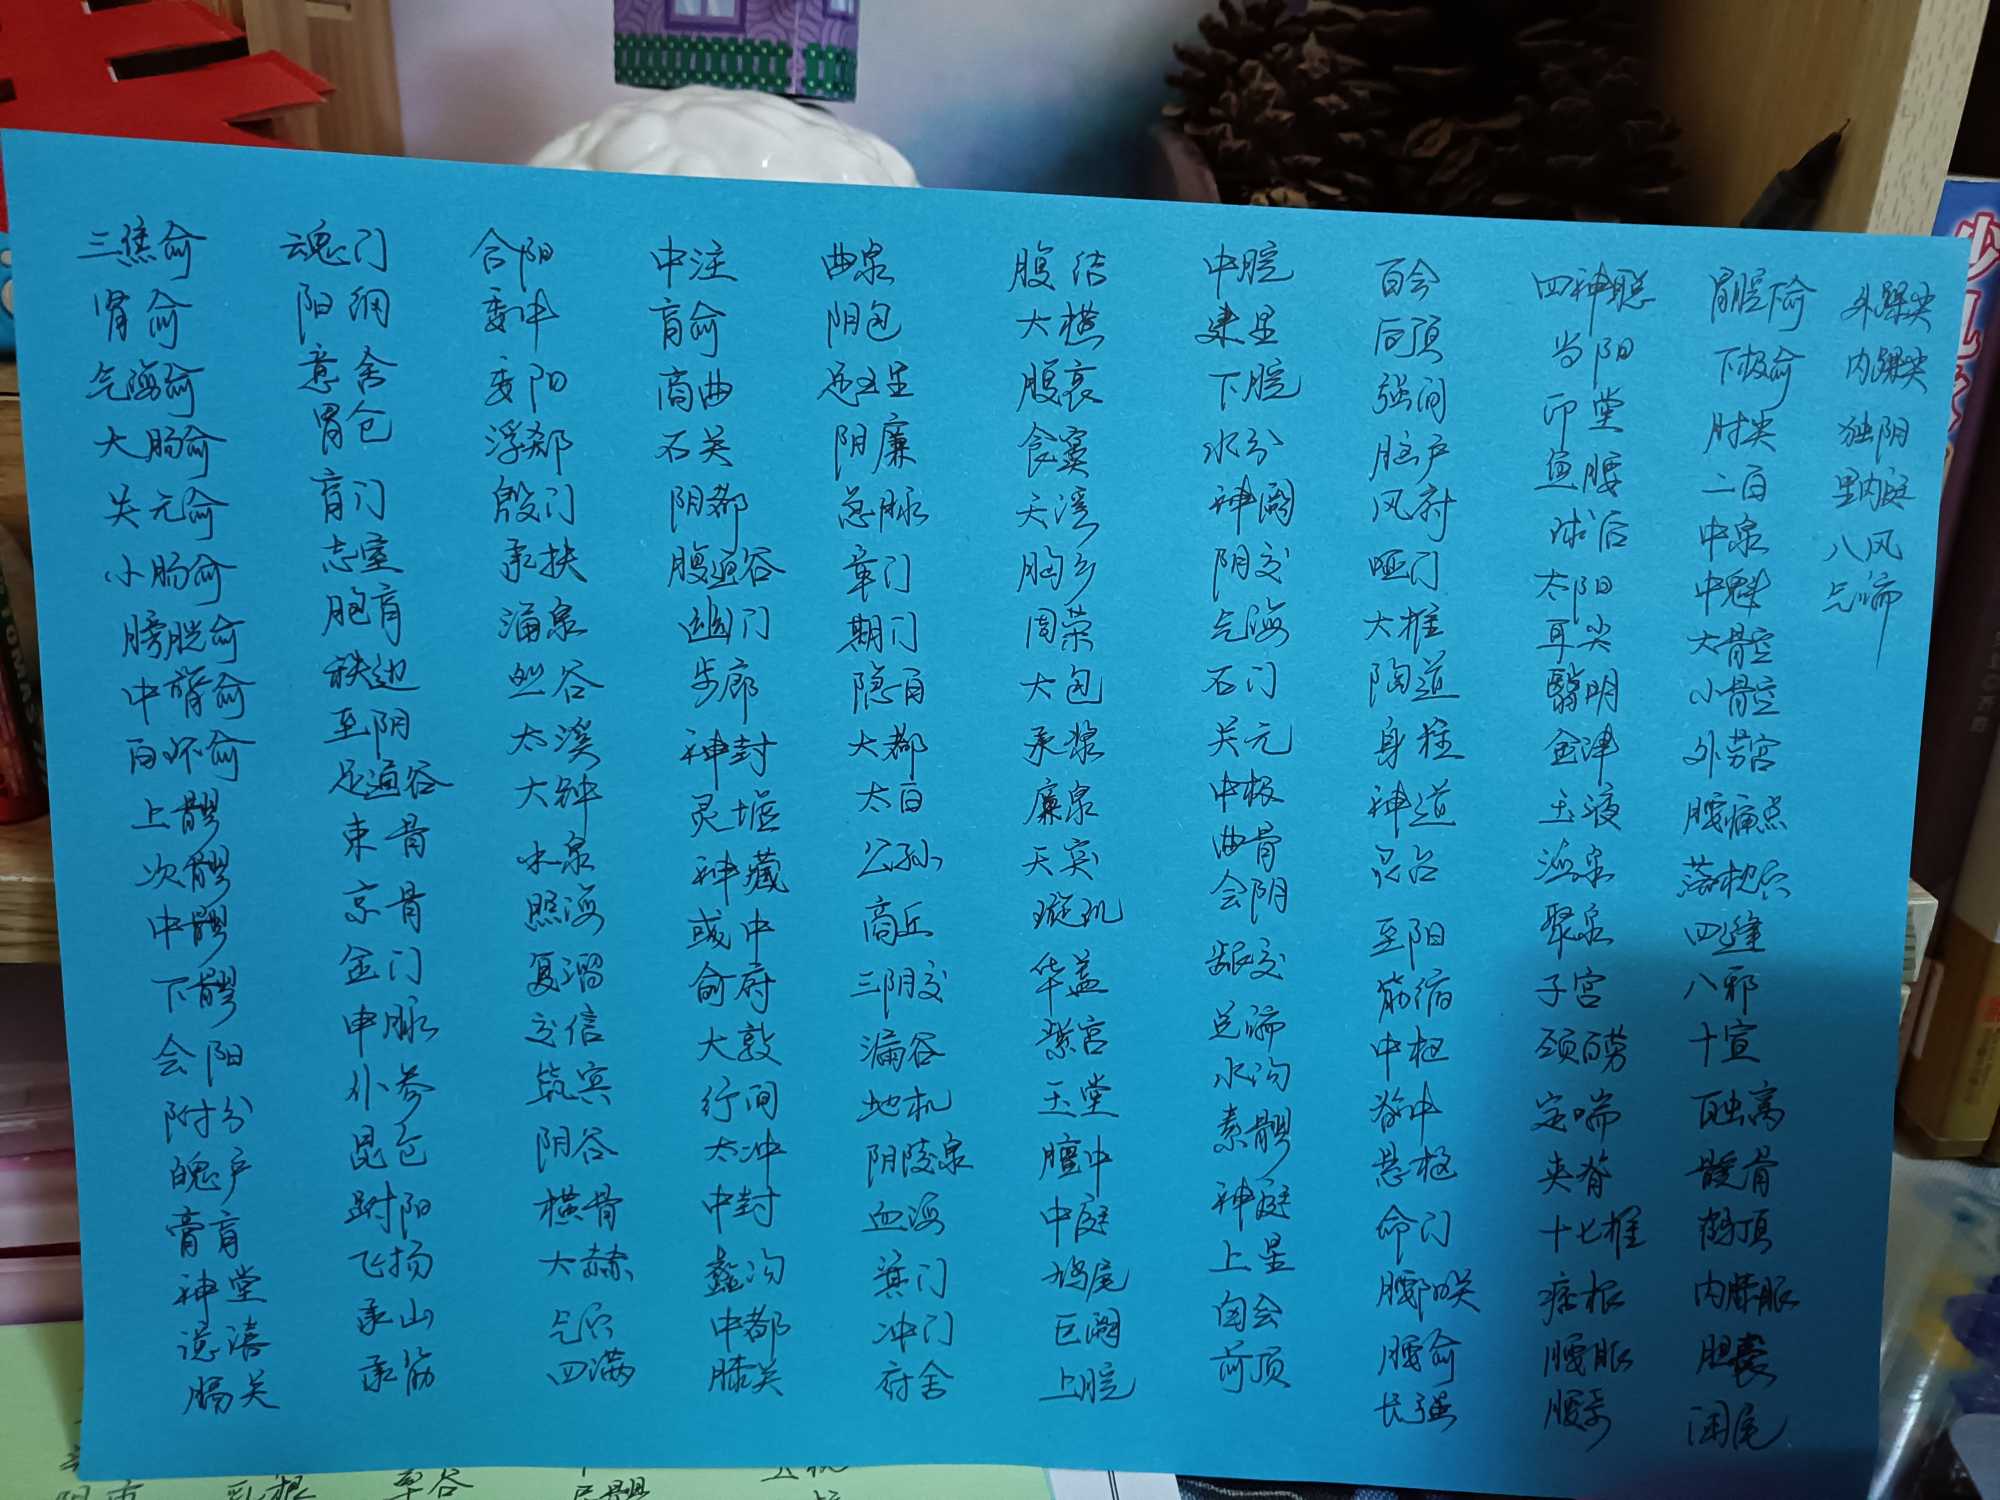 三焦俞
肾俞
气海俞
大肠俞
关元俞
小肠俞
膀胱俞
中膂俞
白环俞
上髎
次髎
中髎
下髎
会阳
附分
魄户
膏肓
神堂
膈关
魂门
阳纲
意舍
胃仓
肓门
志室
胞肓
秩边
至阴
足通谷
束骨
京骨
金门
申脉
仆参
昆仑
跗阳
飞扬
承山
承筋
合阳
委中
委阳
浮郄
殷门
承扶
涌泉
然谷
太溪
大钟
水泉
照海
复溜
交信
筑宾
阴谷
横骨
大赫
气穴
四满
中注
肓俞
商曲
石关
阴都
腹通谷
幽门
步廊
神封
灵墟
神藏
彧中
俞府
大敦
行间
太冲
中封
蠡沟
中都
膝关
曲泉
阴包
足五里
阴廉
急脉
章门
期门
隐白
大都
太白
公孙
商丘
三阴交
漏谷
地机
阴陵泉
血海
箕门
冲门
府舍
腹结
大横
腹哀
食窦
天溪
胸乡
周荣
大包
承浆
廉泉
天突
璇玑
华盖
紫宫
玉堂
膻中
中庭
鸠尾
巨阙
上脘
中脘
建里
下脘
水分
神阙
阴交
气海
石门
关元
中极
曲骨
会阴
龈交
兑端
水沟
素髎
神庭
上星
囟会
前顶
百会
后顶
强间
脑户
风府
哑门
大椎
陶道
身柱
神道
灵台
至阳
筋缩
中枢
脊中
悬枢
命门
腰阳关
腰俞
长强
四神聪
当阳
印堂
鱼腰
球后
太阳
耳尖
翳明
金津
玉液
海泉
聚泉
子宫
颈百劳
定喘
夹脊
十七椎
痞根
腰眼
腰奇
胃脘下俞
下极俞
肘尖
二白
中泉
中魁
大骨空
小骨空
外劳宫
腰痛点
落枕穴
四缝
八邪
十宣
百虫窝
髋骨
鹤顶
内膝眼
胆囊
阑尾
外踝尖
内踝尖
独阴
里内庭
八风
气端
乳根